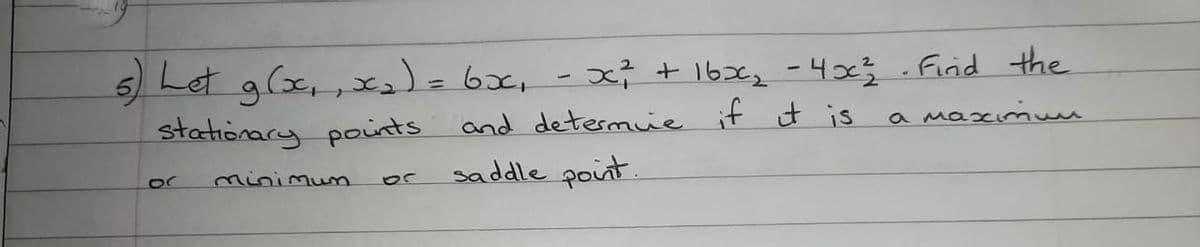 5) Let g(x₁, x₂) = 6x₁ - x₁² + 16x₂ - 4x₂² . Find the
stationary points and determine if it is a maximum
or minimum or saddle point.